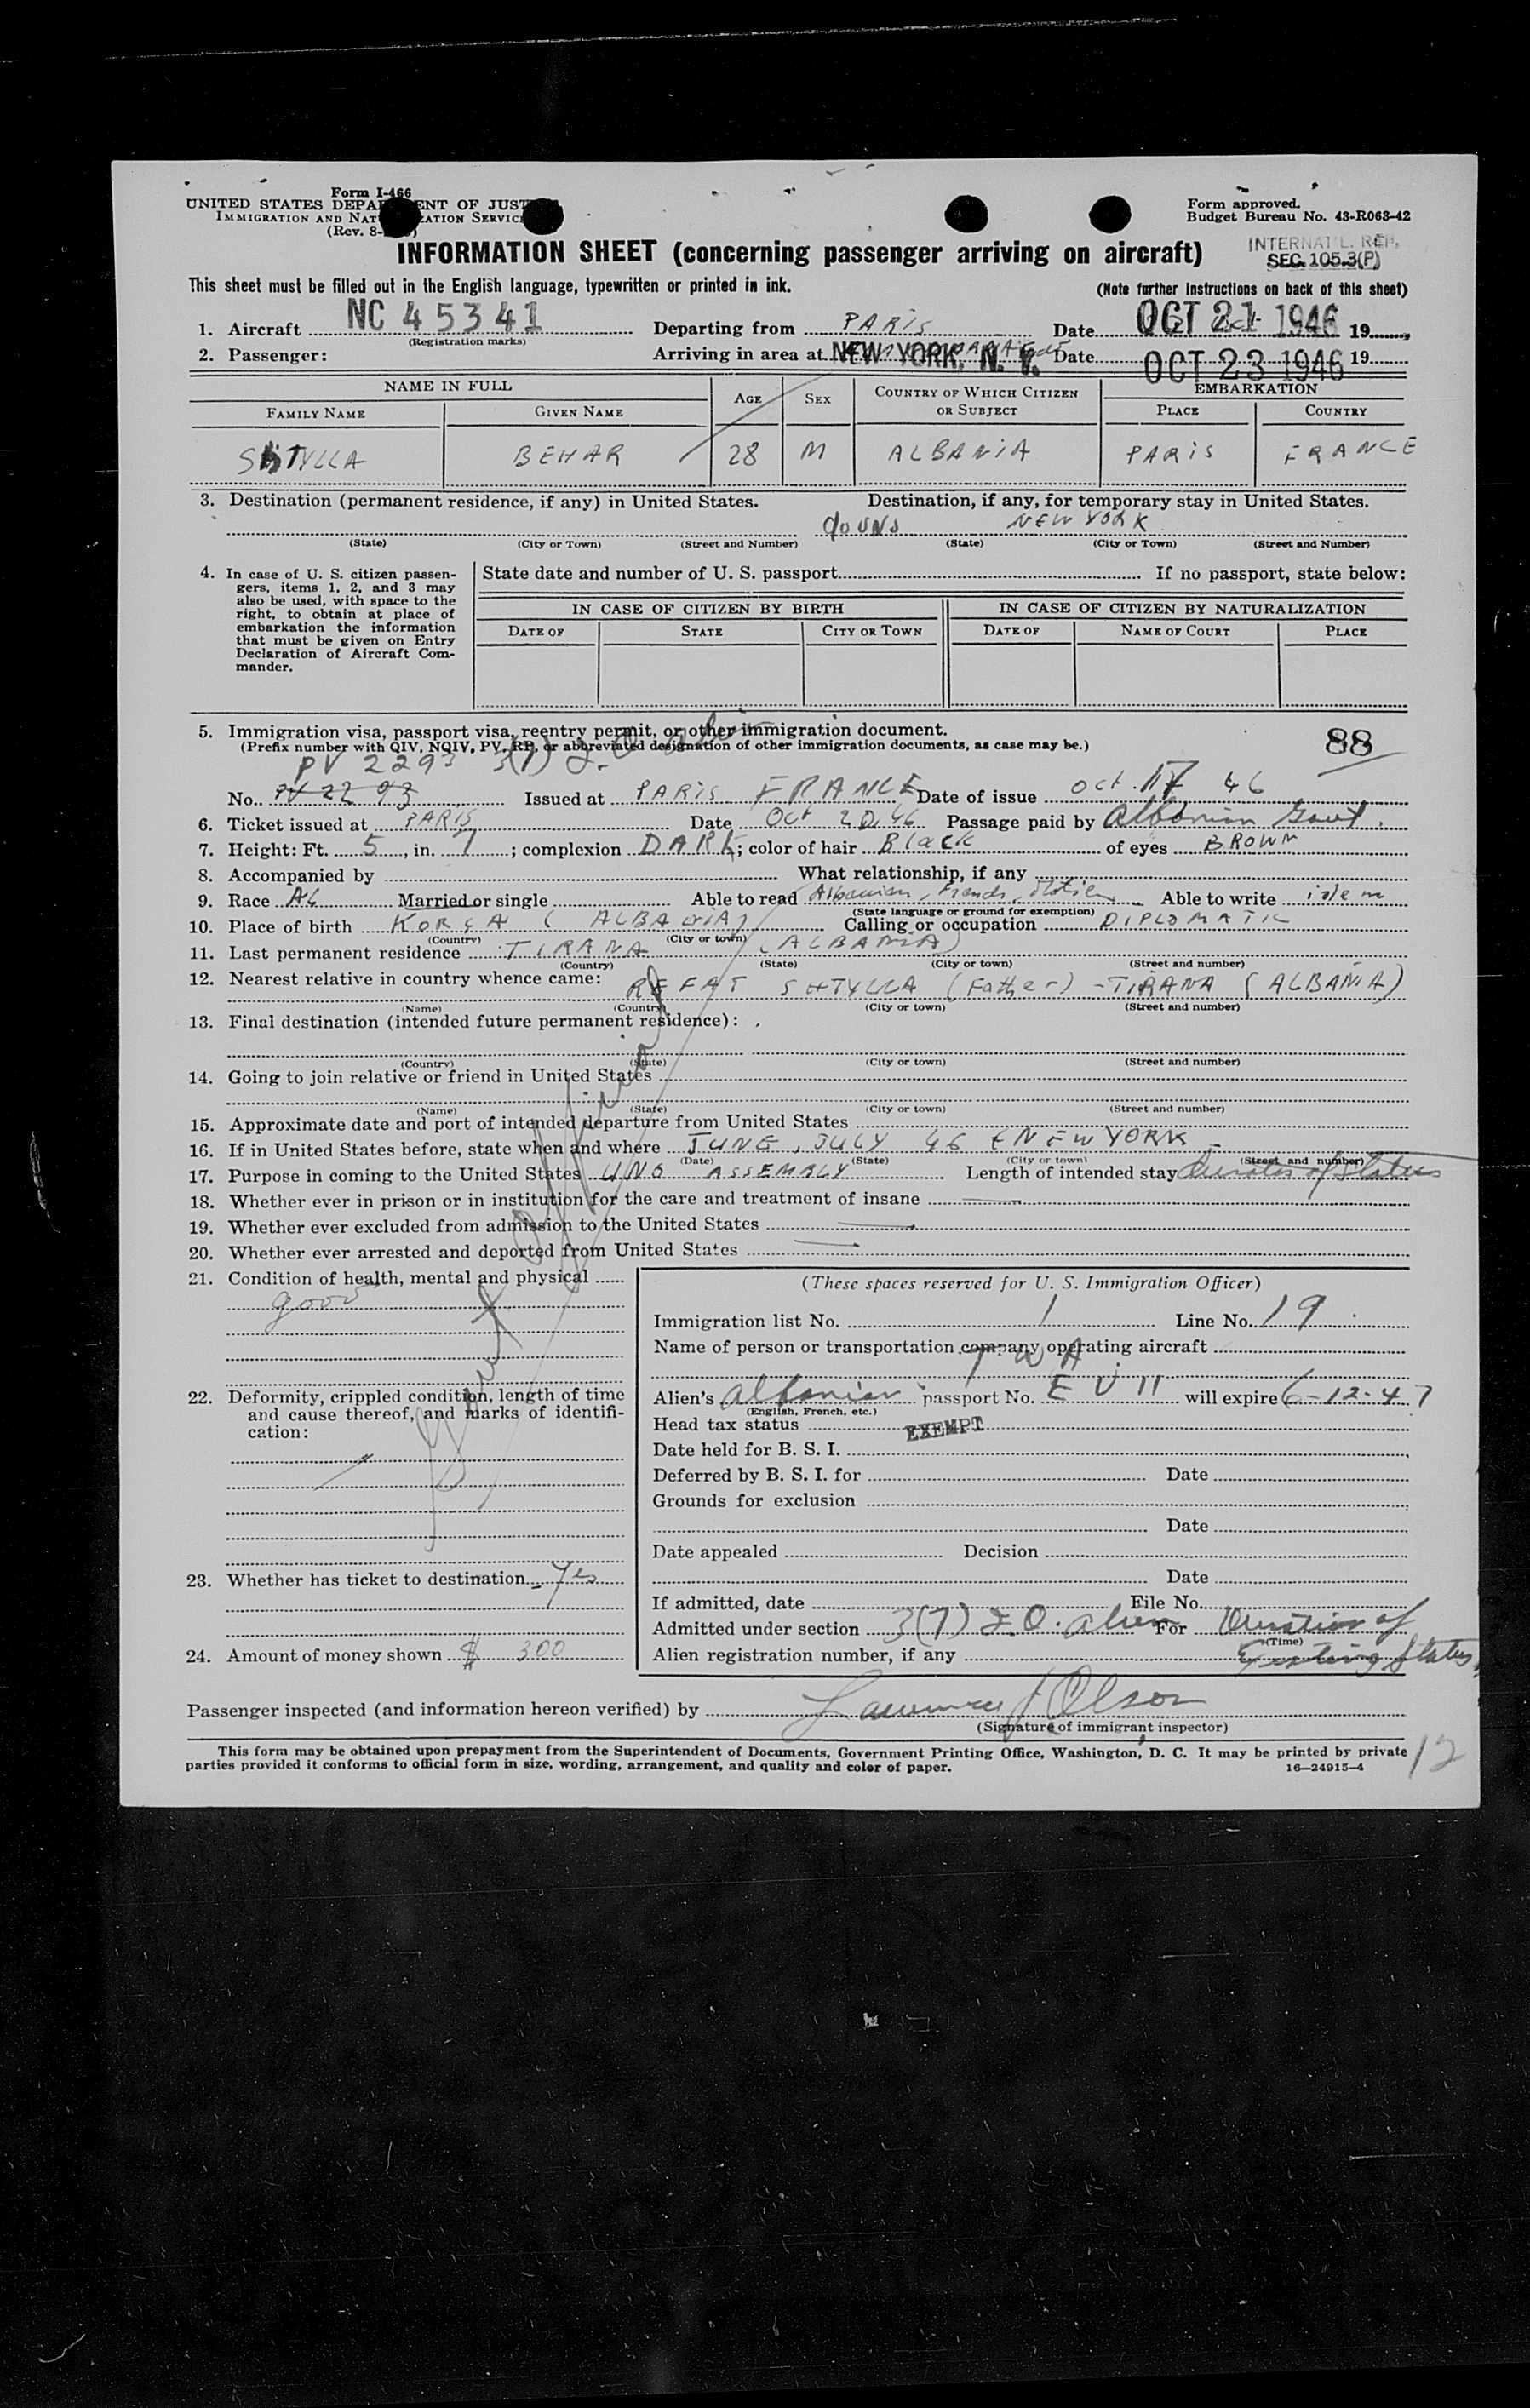 Form I-466
UNITED STATES DEPARTMENT OF JUSTICE
IMMIGRATION AND NATURALIZATION SERVICE
(Rev. 8-
Form approved.
Budget Bureau No. 43-R063-42
INFORMATION SHEET (concerning passenger arriving on aircraft)
INTERNAT'L. REP.
SEC. 105.3(P)
This sheet must be filled out in the English language, typewritten or printed in ink.
(Note further instructions on back of this sheet)
1. Aircraft NC 45341 Departing from PARIS Date OCT 21 1946 19
(Registration marks)
2. Passenger: Arriving in area at NEW YORK, N. Y. Date OCT 23 1946 19
NAME IN FULL AGE SEX COUNTRY OF WHICH CITIZEN OR SUBJECT EMBARKATION
FAMILY NAME GIVEN NAME PLACE COUNTRY
SHTYLLA BEHAR 28 M ALBANIA PARIS FRANCE
3. Destination (permanent residence, if any) in United States. Destination, if any, for temporary stay in United States.
NEW YORK
(State) (City or Town) (Street and Number) (State) (City or Town) (Street and Number)
4. In case of U. S. citizen passengers, items 1, 2, and 3 may also be used, with space to the right, to obtain at place of embarkation the information that must be given on Entry Declaration of Aircraft Commander.
State date and number of U. S. passport If no passport, state below:
IN CASE OF CITIZEN BY BIRTH IN CASE OF CITIZEN BY NATURALIZATION
DATE OF STATE CITY OR TOWN DATE OF NAME OF COURT PLACE
5. Immigration visa, passport visa, reentry permit, or other immigration document.
(Prefix number with QIV, NQIV, PV, RP, or abbreviated designation of other immigration documents, as case may be.)
88
PV 2293 3(7)
No. PV 2293 Issued at PARIS FRANCE Date of issue Oct. 17 46
6. Ticket issued at PARIS Date Oct 20.46 Passage paid by Albanian Govt.
7. Height: Ft. 5, in. 7; complexion DARK; color of hair Black of eyes BROWN
8. Accompanied by What relationship, if any
9. Race AL Married or single Able to read Albanian, French, Italien Able to write idem
(State language or ground for exemption)
10. Place of birth KORÇA (ALBANIA) Calling or occupation DIPLOMATIC
(Country) (City or town)
11. Last permanent residence TIRANA (ALBANIA)
(Country) (State) (City or town) (Street and number)
12. Nearest relative in country whence came: REFAT SHTYLLA (Father) - TIRANA (ALBANIA)
(Name) (Country) (City or town) (Street and number)
13. Final destination (intended future permanent residence):
(Country) (State) (City or town) (Street and number)
14. Going to join relative or friend in United States
(Name) (State) (City or town) (Street and number)
15. Approximate date and port of intended departure from United States
16. If in United States before, state when and where JUNE, JULY 46 NEW YORK
(Date) (State) (City or town) (Street and number)
17. Purpose in coming to the United States UNO ASSEMBLY Length of intended stay Duration of Status
18. Whether ever in prison or in institution for the care and treatment of insane
19. Whether ever excluded from admission to the United States
20. Whether ever arrested and deported from United States
21. Condition of health, mental and physical
good
22. Deformity, crippled condition, length of time and cause thereof, and marks of identification:
23. Whether has ticket to destination Yes
24. Amount of money shown $ 300
(These spaces reserved for U. S. Immigration Officer)
Immigration list No. 1 Line No. 19
Name of person or transportation company operating aircraft
TWA
Alien's Albanian passport No. EV 11 will expire 6-12-47
(English, French, etc.)
Head tax status EXEMPT
Date held for B. S. I.
Deferred by B. S. I. for Date
Grounds for exclusion
Date
Date appealed Decision
Date
If admitted, date File No.
Admitted under section 3(7) I.O. alien For Duration of
(Time)
Alien registration number, if any Existing Status
Passenger inspected (and information hereon verified) by Lawrence J Olson
(Signature of immigrant inspector)
This form may be obtained upon prepayment from the Superintendent of Documents, Government Printing Office, Washington, D. C. It may be printed by private
parties provided it conforms to official form in size, wording, arrangement, and quality and color of paper. 16—24915-4
12